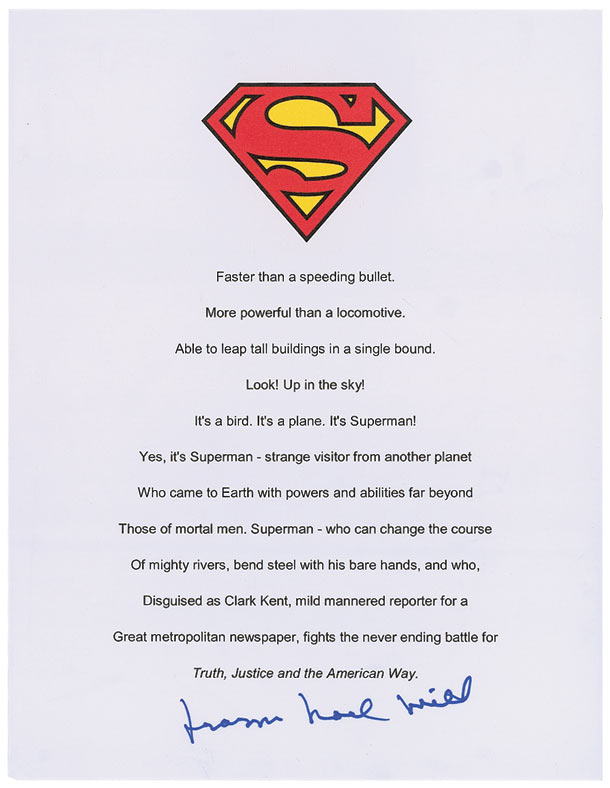 S
Faster than a speeding bullet.
More powerful than a locomotive.
Able to leap tall buildings in a single bound.
Look! Up in the sky!
It's a bird. It's a plane. It's Superman!
Yes, it's Superman - strange visitor from another planet
Who came to Earth with powers and abilities far beyond
Those of mortal men. Superman - who can change the course
Of mighty rivers, bend steel with his bare hands, and who,
Disguised as Clark Kent, mild mannered reporter for a
Great metropolitan newspaper, fights the never ending battle for
Truth, Justice and the American Way.